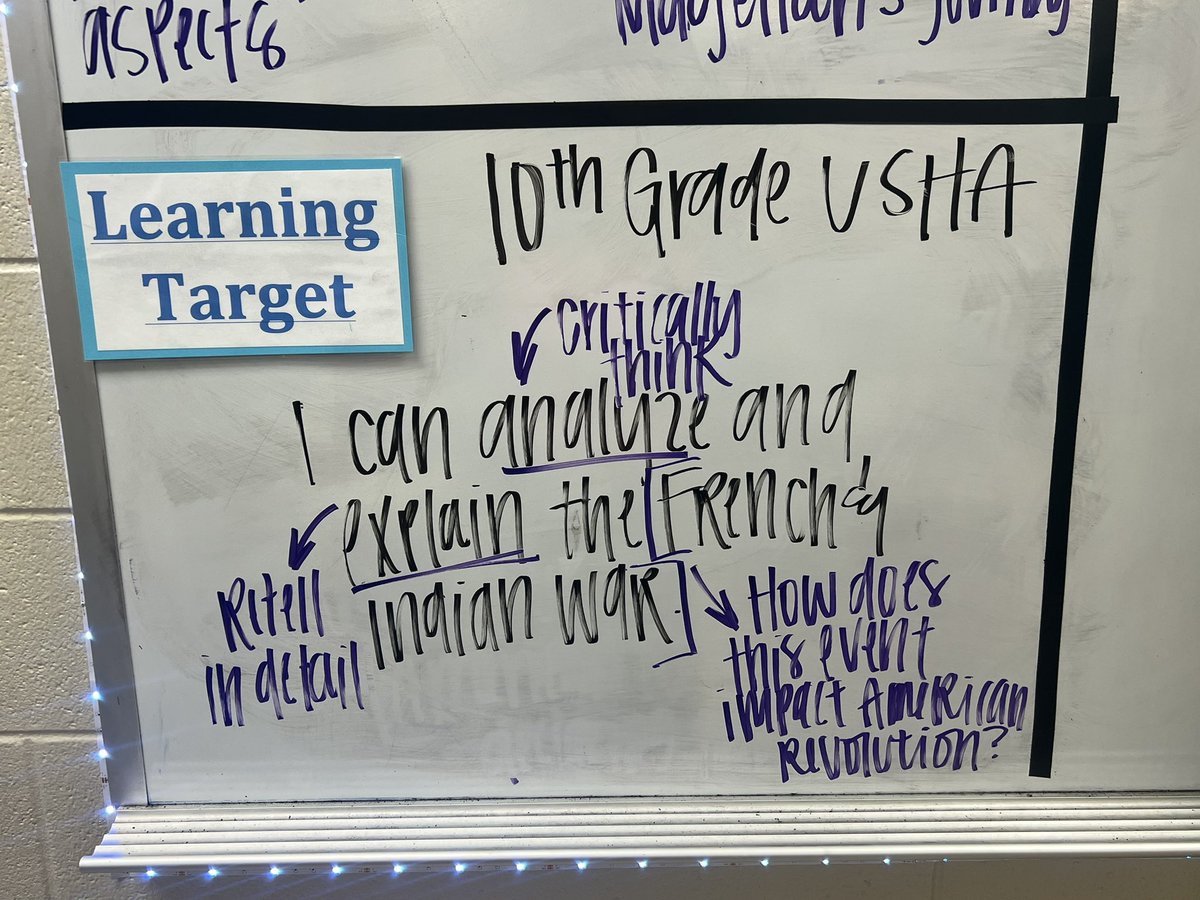 aspects
journey
Learning
Target
10th Grade USHA
critically
think
I can analyze and
explain the [French &
indian war]
Retell
in detail
How does
this event
impact American
revolution?